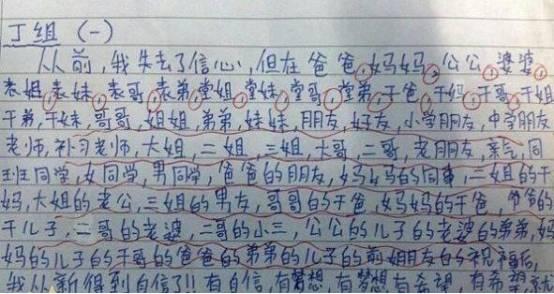 丁组 (一)
从前,我失去了信心,但在爸爸,妈妈,公公,婆婆,
表姐,表妹,表哥,表弟,堂姐,堂妹,堂哥,堂弟,干爸,干妈,干哥,干姐
干弟,干妹,哥哥,姐姐,弟弟,妹妹,朋友,好友,小学朋友,中学朋友
老师,补习老师,大姐,二姐,三姐,大哥,二哥,老朋友,亲气,同
班同学,女同学,男同学,爸爸的朋友,妈妈的同事,二姐的干
妈,大姐的老公,三姐的男友,哥哥的干爸,妈妈的干爸,爷爷的
干儿子,二哥的老婆,二哥的小三,公公的儿子的老婆的弟弟,妈
妈的儿子的干哥的爸爸的弟弟的儿子的前朋友的祝福后,
我从新得到自信了!!有自信,有梦想,有梦想有希望,有希望就